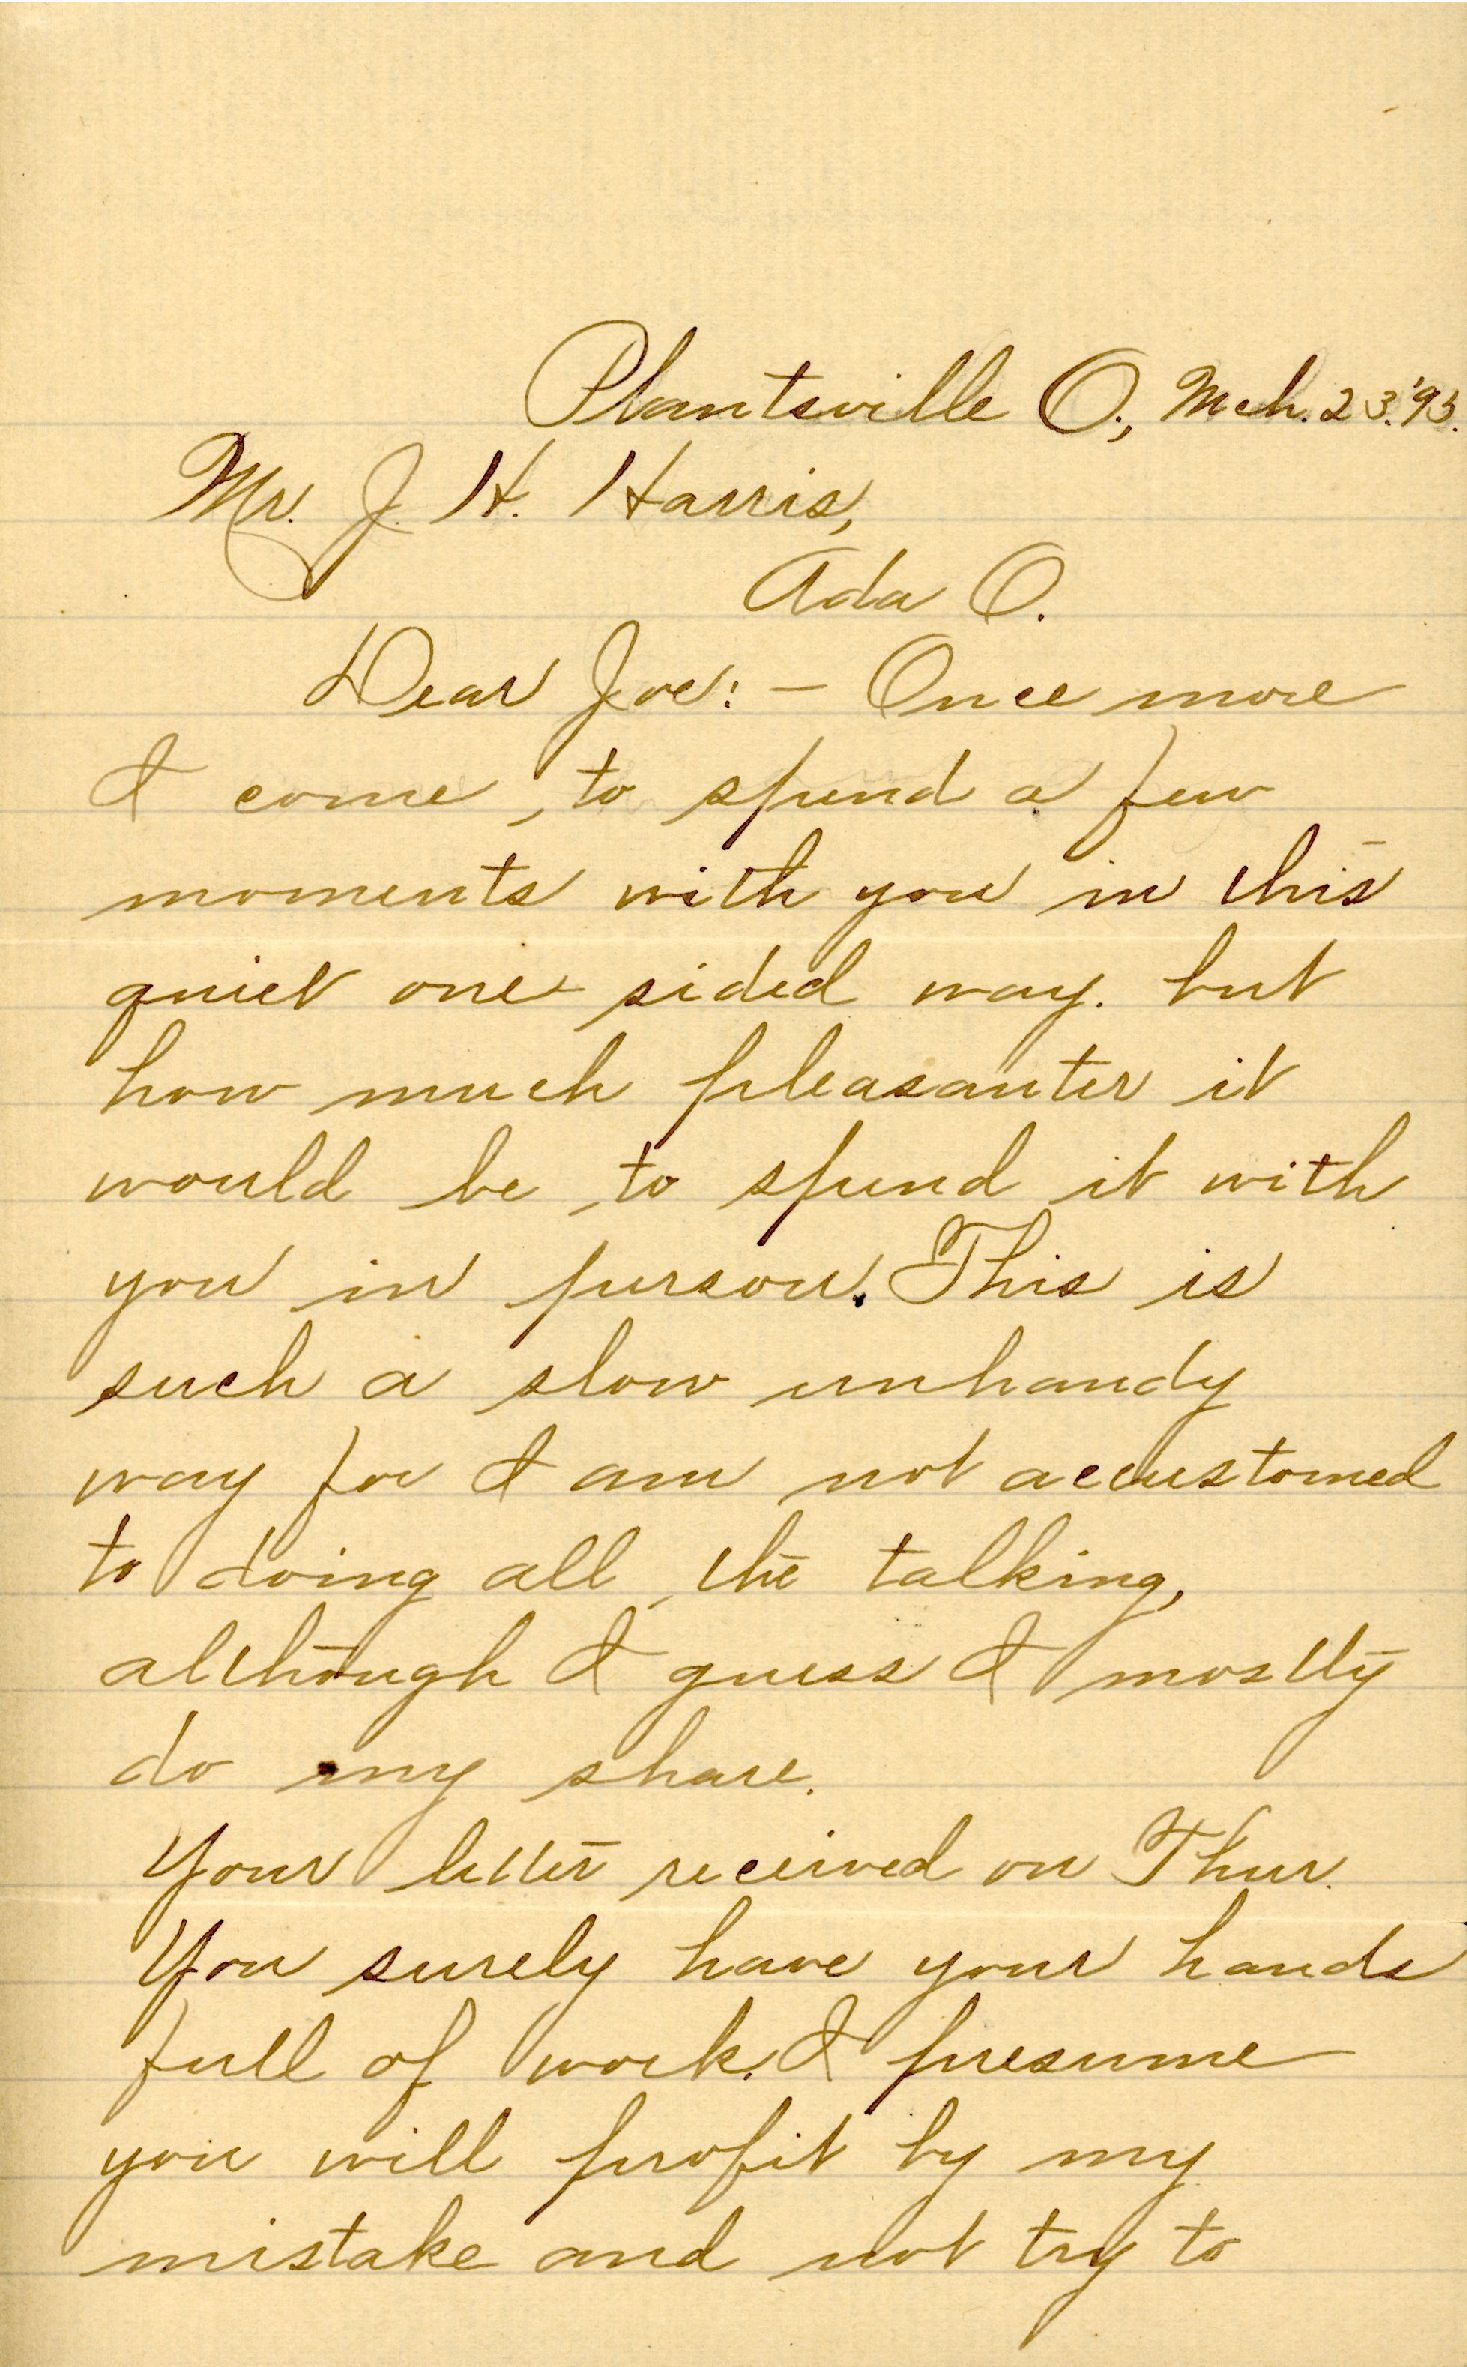 Plantsville O., Mch. 23. '93.
Mr. J. H. Harris,
Ada O.
Dear Joe: – Once more
I come to spend a few
moments with you in this
quiet one sided way. but
how much pleasanter it
would be to spend it with
you in person. This is
such a slow unhandy
way for I am not accustomed
to doing all the talking,
although I guess I mostly
do my share.
Your letter received on Thur.
You surely have your hands
full of work. I presume
you will profit by my
mistake and not try to